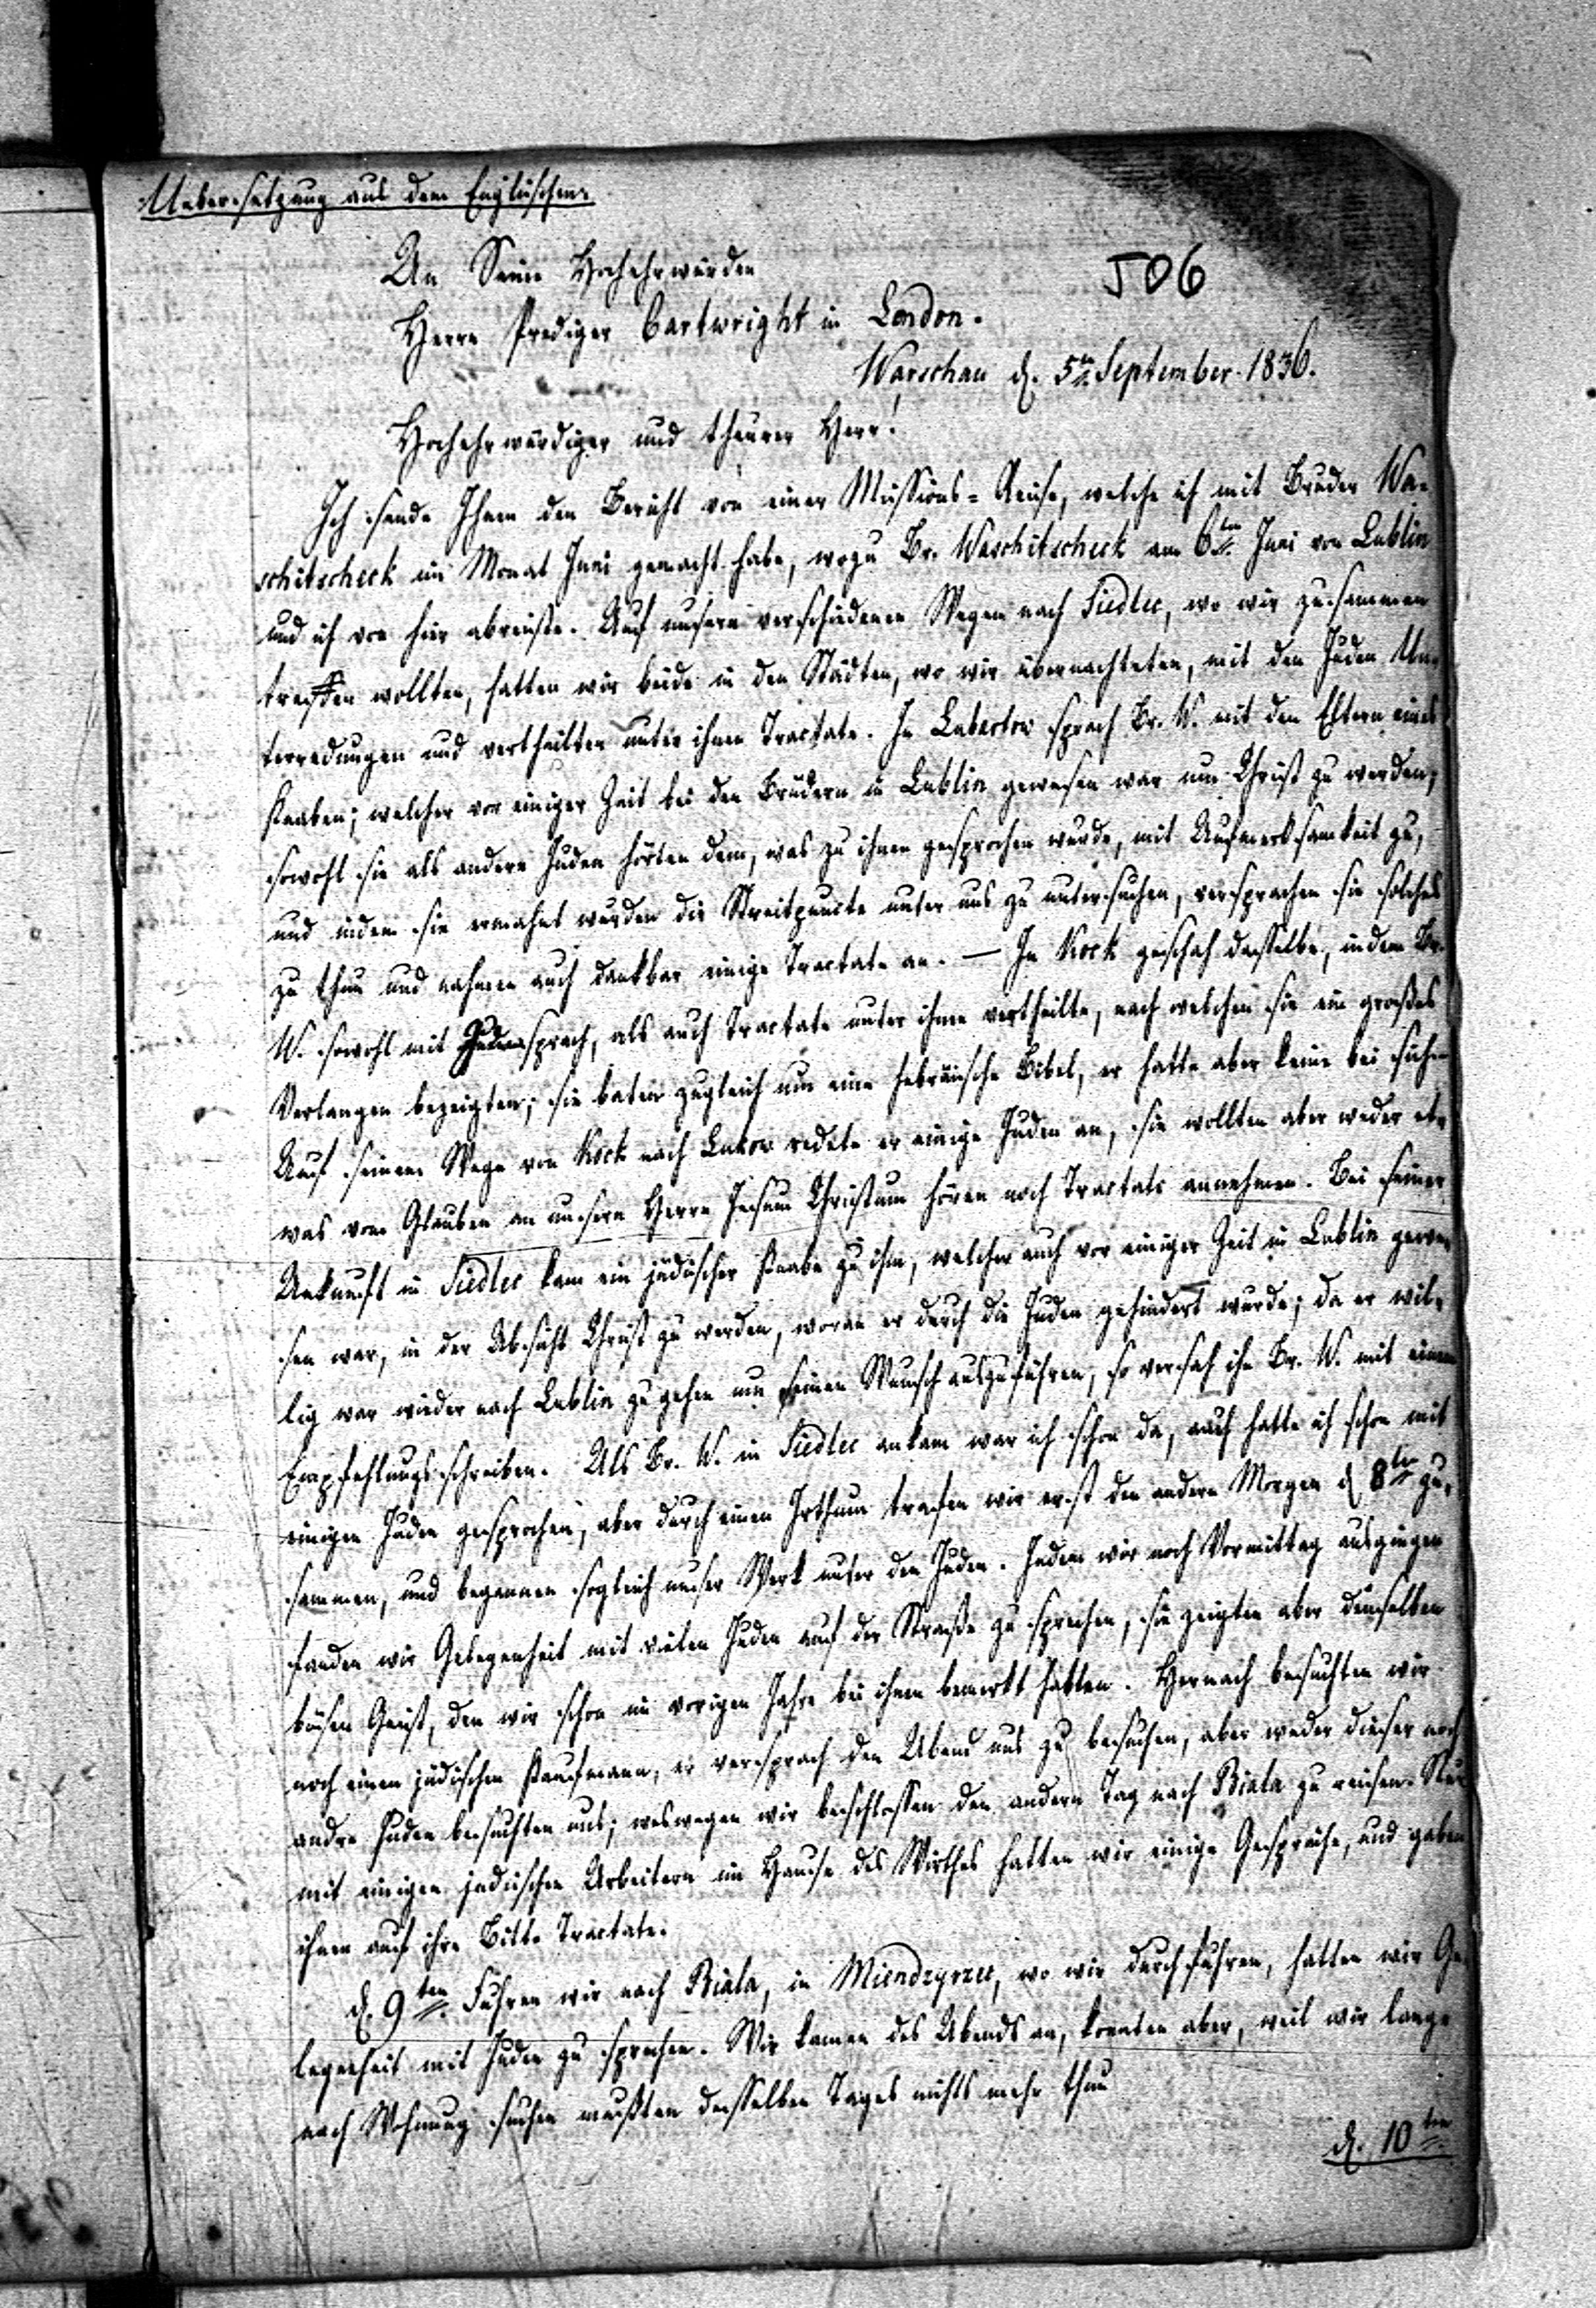 Uebersetzung aus dem Englischen.
An Seine Hochehrwürden
506
Herrn Prediger Cartwright in London.
Warschau d. 5ten September. 1836.
Hochehrwürdiger und theurer Herr!
Ich sende Ihnen den Bericht von einer Missions-Reise, welche ich mit Bruder Wa-
schitscheck im Monat Juni gemacht habe, wozu Br. Waschitscheck am 6ten Juni von Lublin
und ich von hier abreiste. Auf unsern verschiedenen Wegen nach Siedlec, wo wir zusammen
treffen wollten, hatten wir beide in den Städten, wo wir übernachteten, mit den Juden Un-
terredungen und vertheilten unter ihnen Tractate. In Lubartow sprach Br. W. mit den Eltern eines
Knaben; welcher vor einiger Zeit bei den Brüdern in Lublin gewesen war um Christ zu werden;
sowohl sie als andere Juden hörten dem, was zu ihnen gesprochen wurde, mit Aufmerksamkeit zu,
und indem sie ermahnt wurden die Streitpuncte unter uns zu untersuchen, versprachen sie solches
zu thun und nahmen auch dankbar einige Tractate an. — In Kock geschah dasselbe, indem Br.
W. sowohl mit Juden sprach, als auch Tractate unter ihnen vertheilte, nach welchen sie ein großes
Verlangen bezeigten; sie baten zugleich um eine hebräische Bibel, er hatte aber keine bei sich.
Auf seinem Wege von Kock nach Lukow redete er einige Juden an, sie wollten aber weder et-
was vom Glauben an unsern Herrn Jesum Christum hören noch Tractate annehmen. Bei seiner
Ankunft in Siedlec kam ein jüdischer Knabe zu ihm, welcher auch vor einiger Zeit in Lublin gewe-
sen war, in der Absicht Christ zu werden, woran er durch die Juden gehindert wurde; da er wil-
lig war wieder nach Lublin zu gehen um seinen Wunsch auszuführen, so versah ihn Br. W. mit einem
Empfehlungsschreiben. Als Br. W. in Siedlec ankam war ich schon da, auch hatte ich schon mit
einigen Juden gesprochen, aber durch einen Irthum trafen wir erst den andern Morgen d 8ten zu-
sammen, und begannen sogleich unser Werk unter den Juden. Indem wir noch Vormittag ausgingen
fanden wir Gelegenheit mit vielen Juden auf der Straße zu sprechen, sie zeigten aber denselben
bösen Geist, den wir schon im vorigen Jahre bei ihnen bemerkt hatten. Hernach besuchten wir
noch einen jüdischen Kaufmann, er versprach den Abend uns zu besuchen, aber weder dieser noch
andre Juden besuchten uns; weswegen wir beschlossen den andern Tag nach Biala zu reisen. Nur
mit einigen jüdischen Arbeitern im Hause des Wirthes hatten wir einige Gespräche, und gaben
ihnen auf ihre Bitte Tractate.
d. 9ten Fuhren wir nach Biala, in Miendzyrzec, wo wir durchfuhren, hatten wir Ge-
legenheit mit Juden zu sprechen. Wir kamen des Abends an, konnten aber, weil wir lange
nach Wohnung suchen mußten desselben Tages nichts mehr thun
d. 10ten